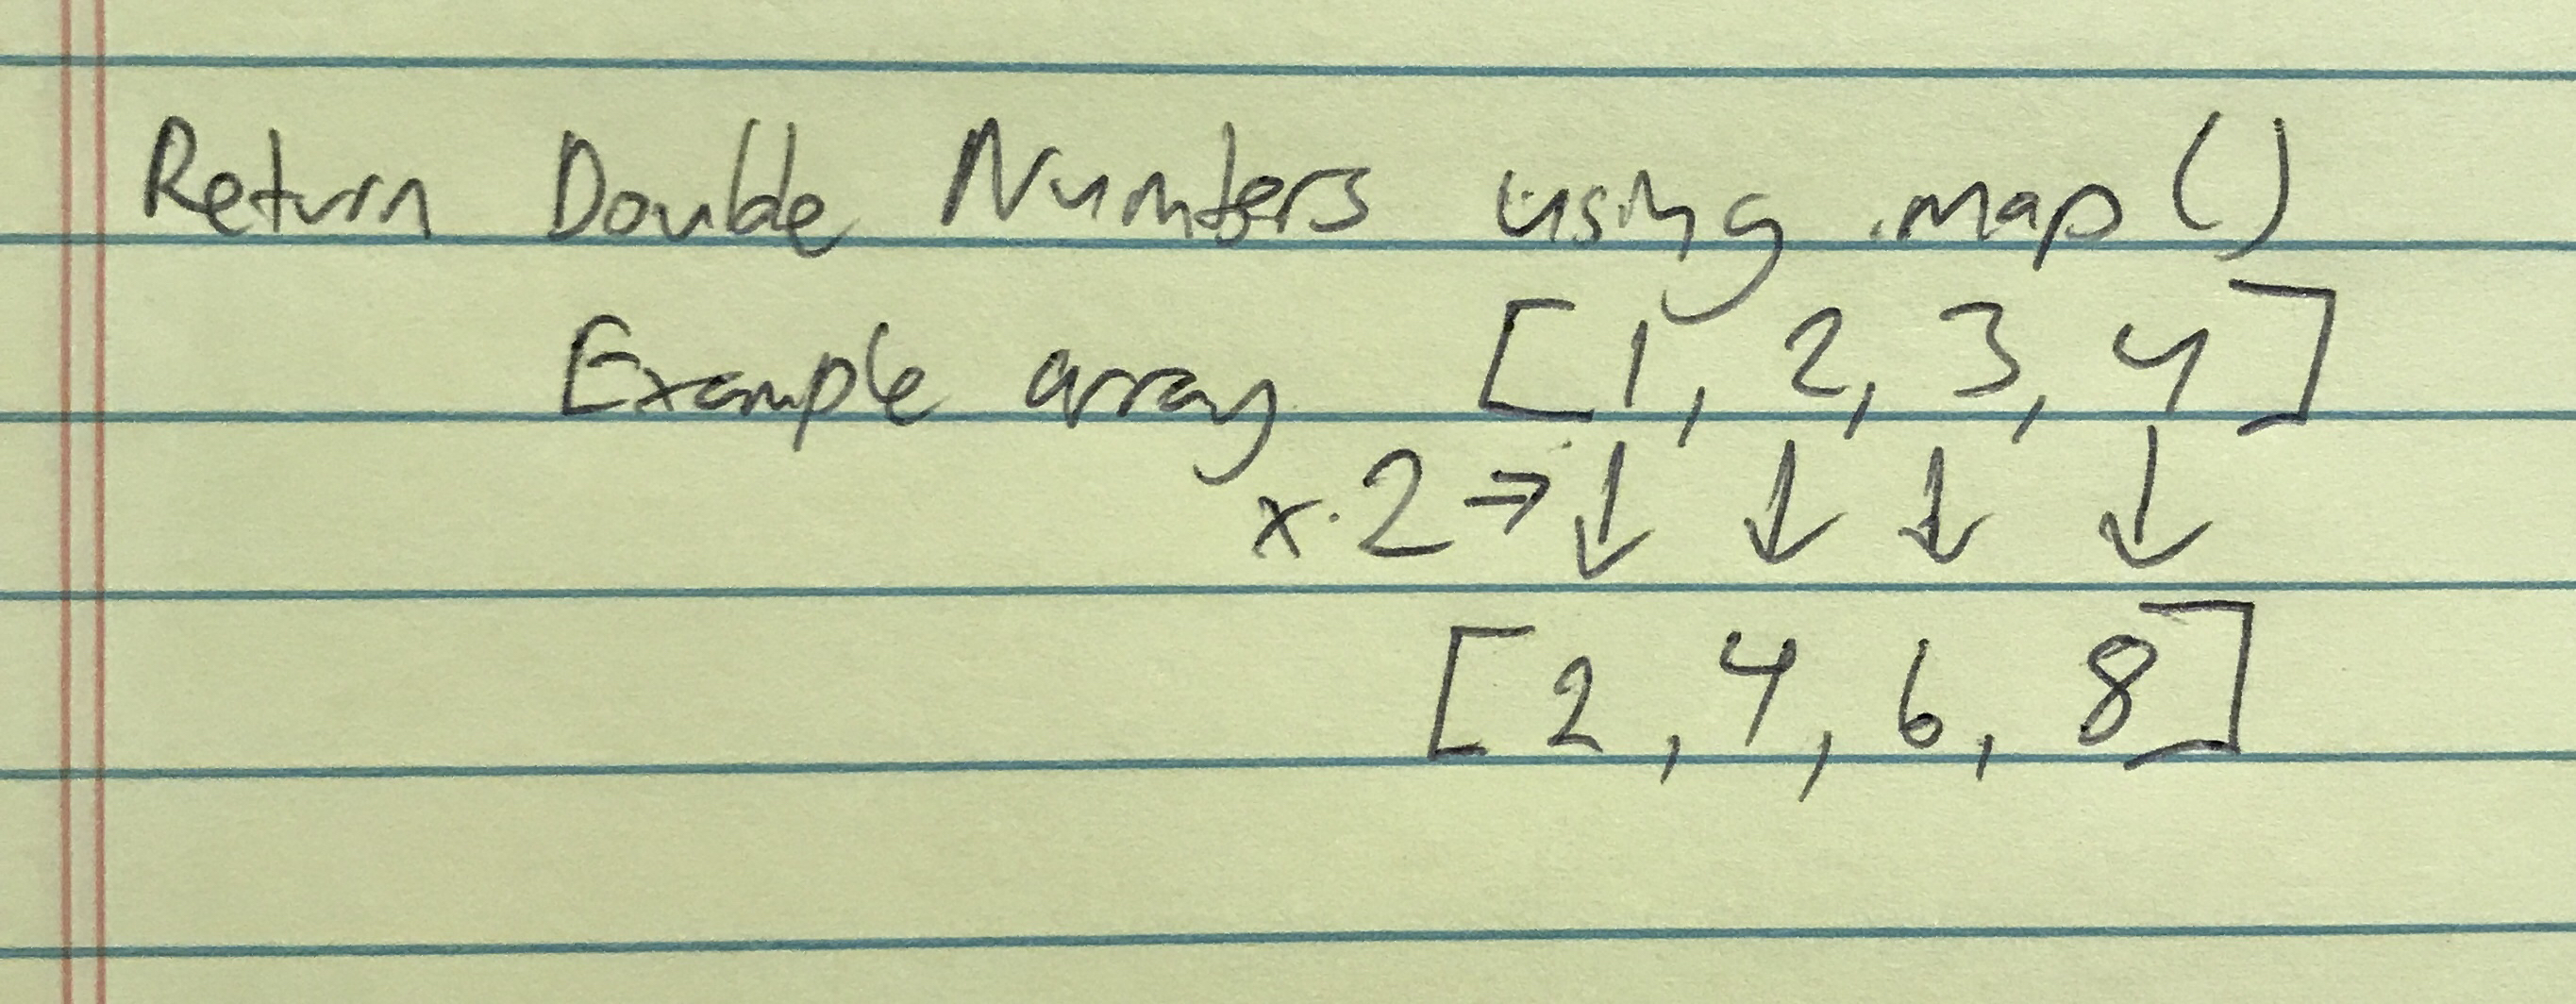 Return Double Numbers using .map()
Example array [1, 2, 3, 4]
x·2 → ↓ ↓ ↓ ↓
[2, 4, 6, 8]